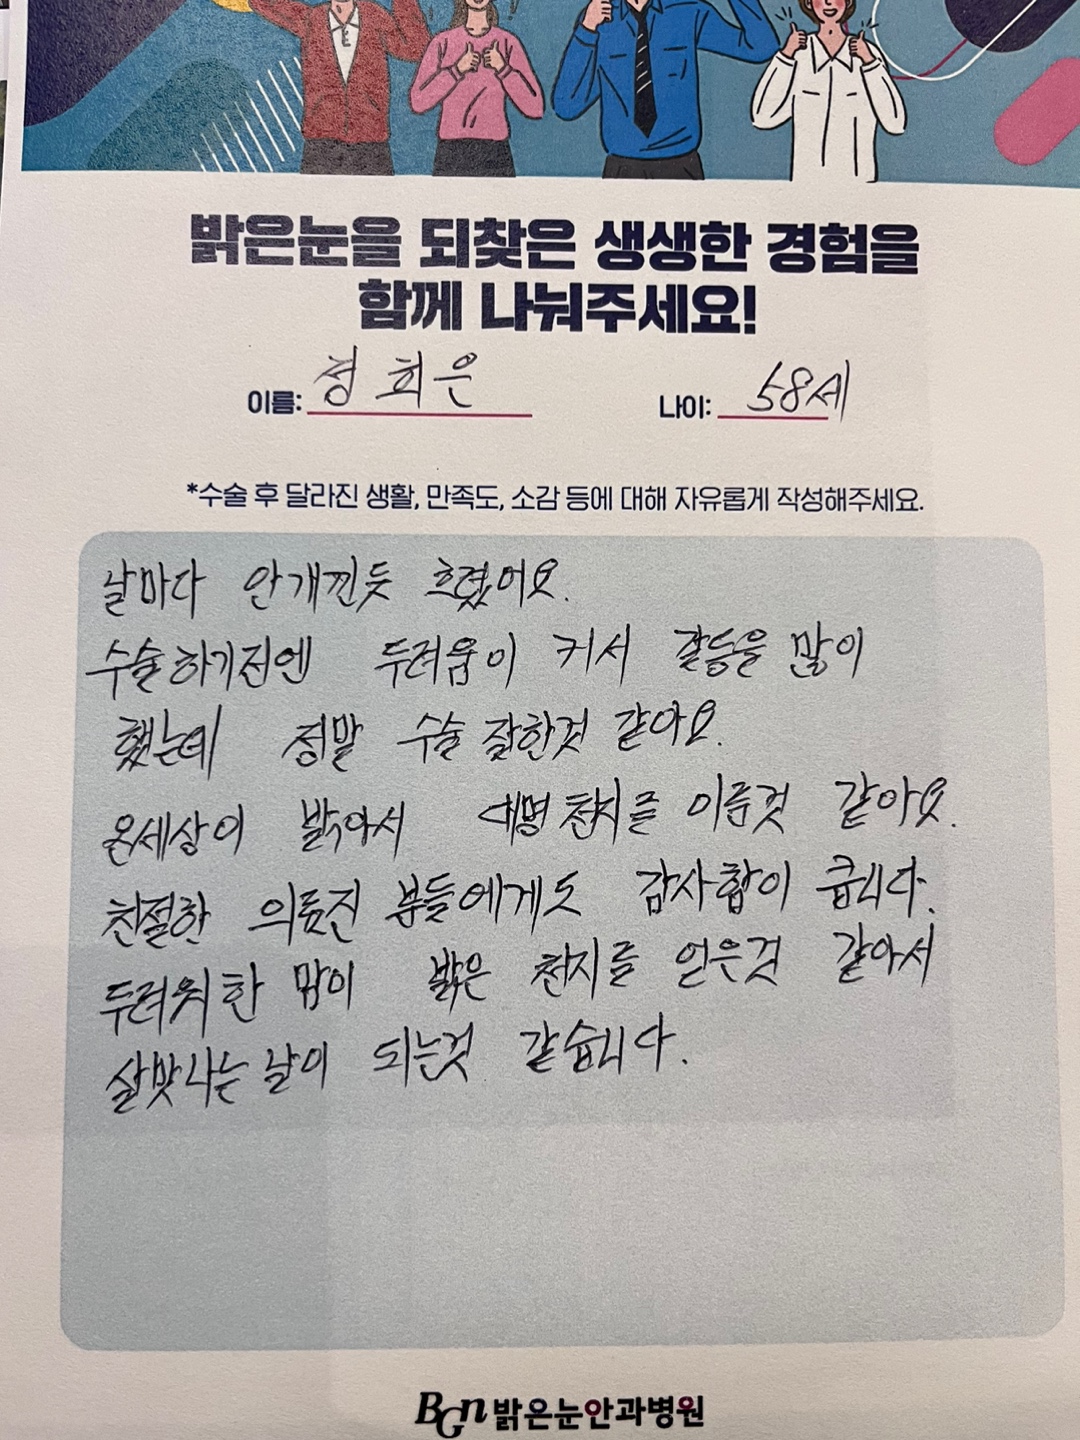 밝은눈을 되찾은 생생한 경험을
함께 나눠주세요!
이름: 정희은 나이: 58세
*수술 후 달라진 생활, 만족도, 소감 등에 대해 자유롭게 작성해주세요.
날마다 안개낀듯 흐렸어요.
수술하기전엔 두려움이 커서 갈등을 많이
했는데 정말 수술 잘한것 같아요.
온세상이 밝아서 대명천지를 이룬것 같아요.
친절한 의료진 분들에게도 감사함이 큽니다.
두려워한 맘이 밝은 천지를 얻은것 같아서
살맛나는 날이 되는것 같습니다.
BGn 밝은눈안과병원